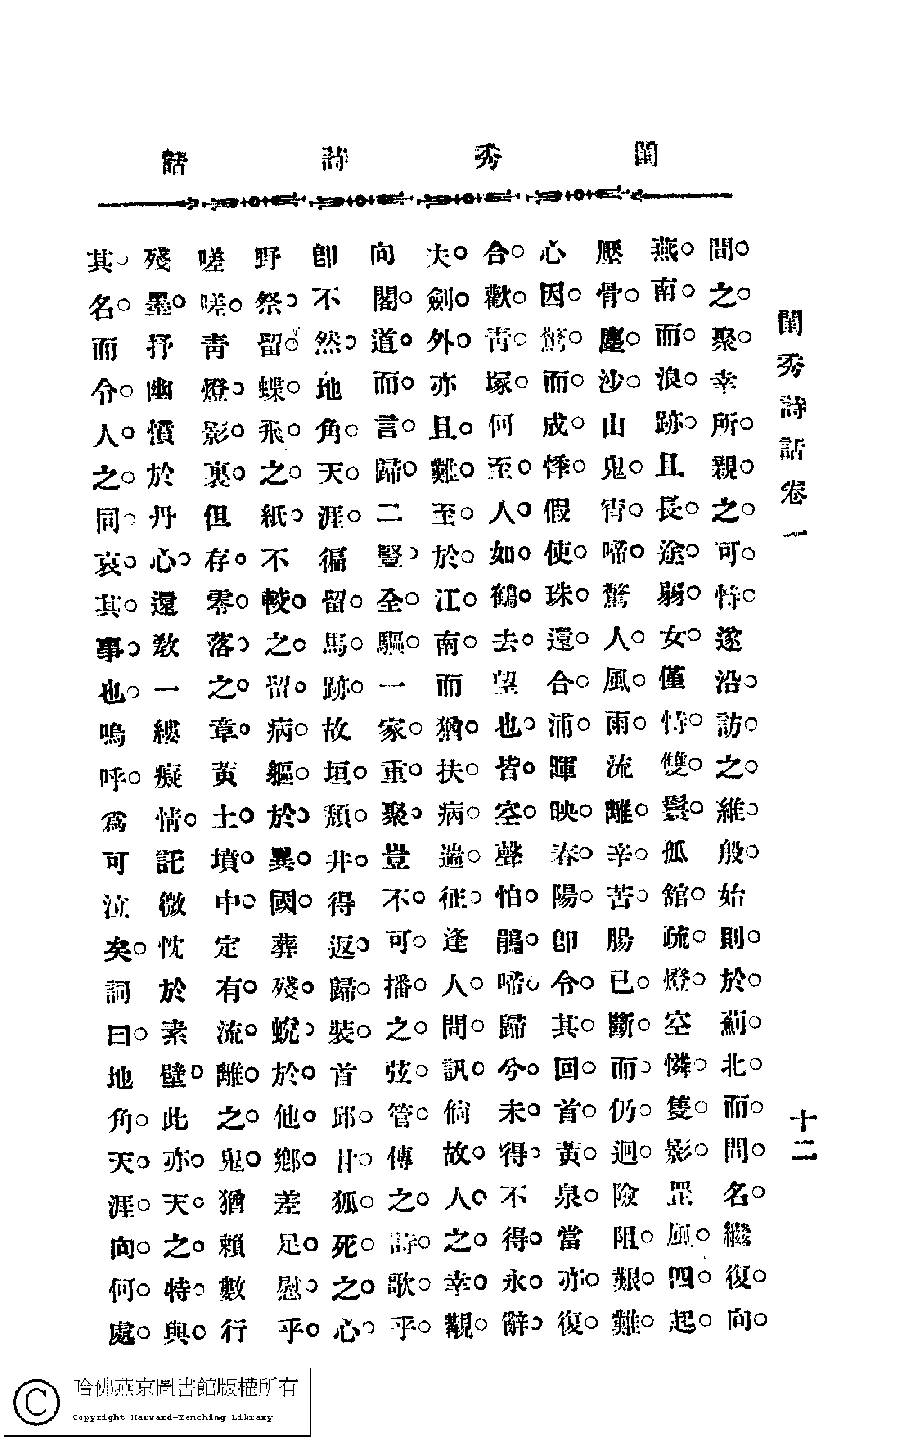 閨秀詩話
閨秀詩話卷一
十二
間之聚幸所親之可恃遂沿訪之維般始則於薊北而問名繼復向
燕南而浪跡且長途弱女僅恃雙鬟孤舘疏燈空憐隻影罡風四起
壓骨塵沙山鬼宵啼驚人風雨流離辛苦腸已斷而仍迴險阻艱難
心因驚而成悸假使珠還合浦暉映春陽卽令其回首黃泉當亦復
合歡靑塚何至人如鶴去望也皆空聲怕鵑啼歸兮未得不得永辭
夫劍外亦且難至於江南而猶扶病遄征逢人問訊倘故人之幸覯
向閣道而言歸二豎全驅一家重聚豈不可播之弦管傳之詩歌乎
卽不然地角天涯徧留馬跡故垣頹井得返歸裝首邱甘狐死之心
野祭留蝶飛之紙不較之留病軀於異國葬殘蛻於他鄉差足慰乎
嗟嗟靑燈影裏但存零落之章黃土墳中定有流離之鬼猶賴數行
殘墨抒幽憤於丹心還敎一縷癡情託微忱於素壁此亦天之特與
其名而令人之同哀其事也嗚呼爲可泣矣詞曰地角天涯向何處
哈佛燕京圖書館版權所有
Copyright Harvard-Yenching Library